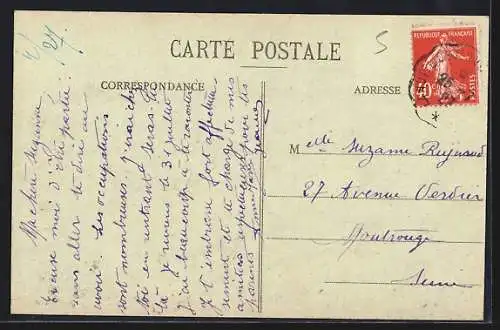 5
CARTE POSTALE
CORRESPONDANCE
ADRESSE
REPUBLIQUE FRANÇAISE
40
POSTES
Ma chère Suzanne,
Excuse moi d'être partie
sans aller te dire au
revoir. Les occupations
sont nombreuses. J'irai chez
toi en rentrant
Je reviens le 31 Juillet
J'ai beaucoup à te raconter
Je t'embrasse fort affectueu-
sement et te charge de mes
amitiés respectueuses pour tes
parents
Melle Suzanne Reynaud
27 Avenue Verdier
Montrouge
Seine